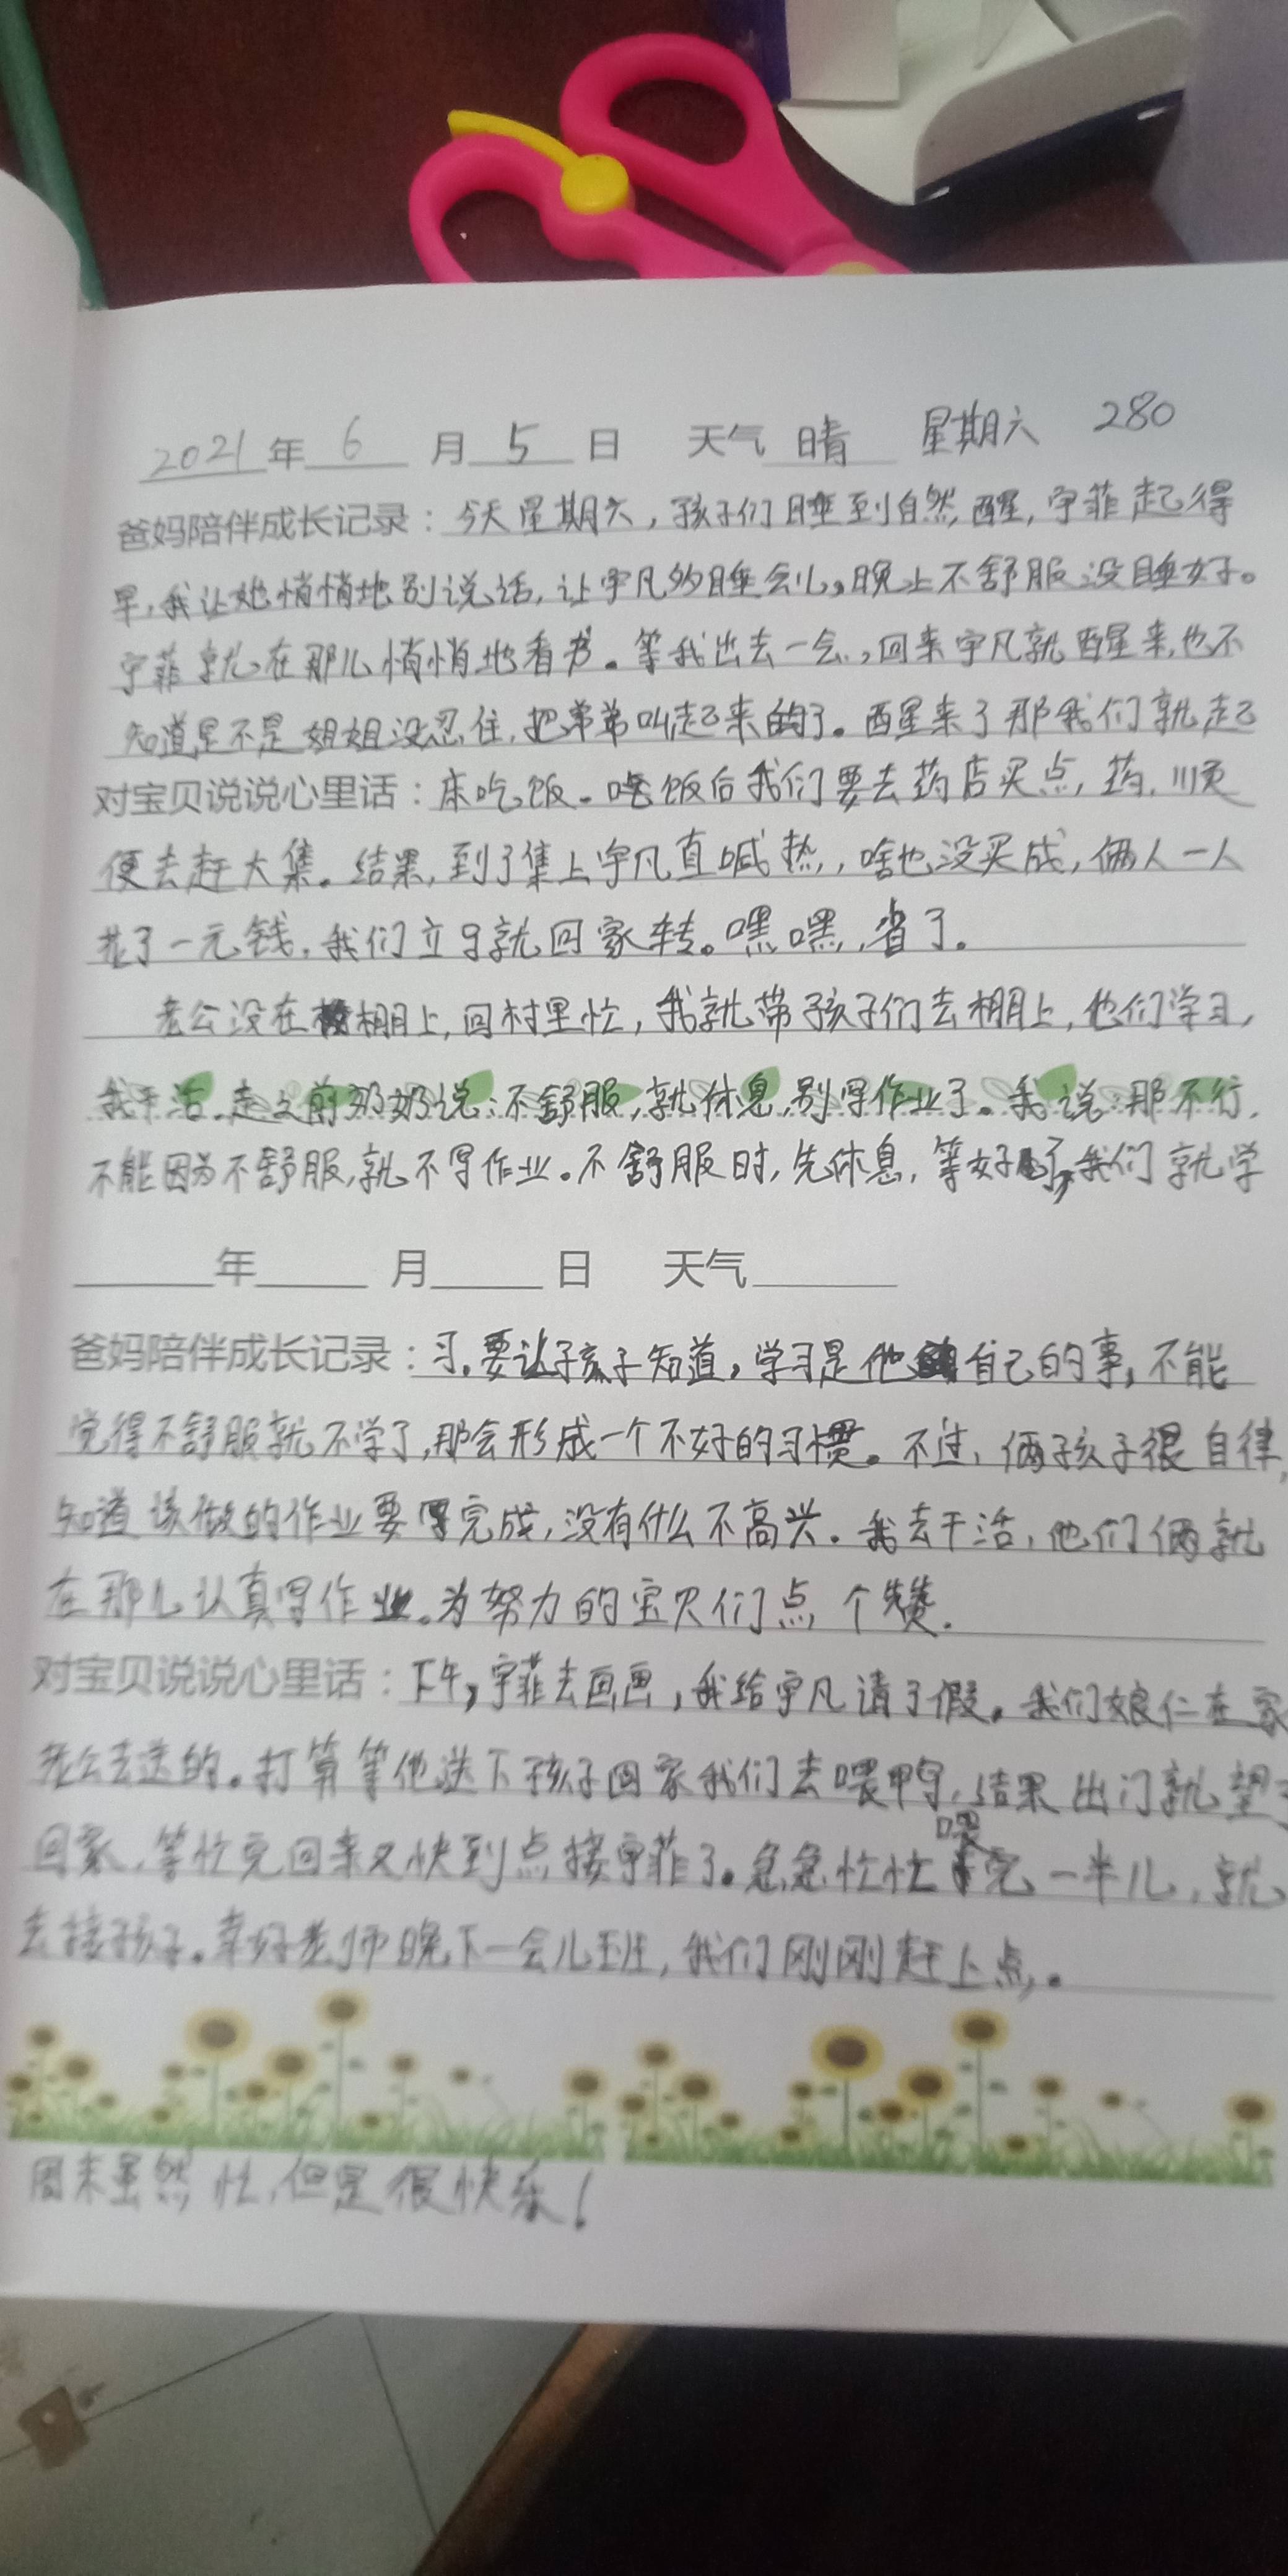 2021年 6 月 5 日 天气 晴 星期六 280
爸妈陪伴成长记录：今天星期六，孩子们睡到自然醒，宇菲起得
早，我让她悄悄地别说话，让宇凡多睡会儿，晚上不舒服没睡好。
宇菲就在那儿悄悄地看书。等我出去一会，回来宇凡就醒来，也不
知道是不是姐姐没忍住，把弟弟叫起来的了。醒来了那我们就起
对宝贝说说心里话：床吃饭。吃饭后我们要去药店买点药，顺
便去赶大集。结果，到了集上宇凡直喊热，啥也没买成，俩人一人
花了一元钱，我们立马就回家转。嘿嘿，省了。
老公没在棚上，回村里忙，我就带孩子们去棚上，他们学习，
我干活。走之前奶奶说：不舒服，就休息，别写作业了。我说：那不行，
不能因为不舒服，就不写作业。不舒服时，先休息，等好了，我们就学
年 月 日 天气
爸妈陪伴成长记录：习。要让孩子知道，学习是他自己的事，不能
觉得不舒服就不学了，那会形成一个不好的习惯。不过，俩孩子很自律，
知道该做的作业要写完成，没有什么不高兴。我去干活，他们俩就
在那儿认真写作业。为努力的宝贝们点个赞。
对宝贝说说心里话：下午，宇菲去画画，我给宇凡请了假。我们娘仨在家
老公去送的。打算等他送下孩子回家我们去喂鸭，结果出门就望
回家，等忙完回来又快到点接宇菲了。急急忙忙喂完一半儿，就
去接孩子。幸好老师晚下一会儿班，我们刚刚赶上点。
周末虽然忙，但是很快乐！